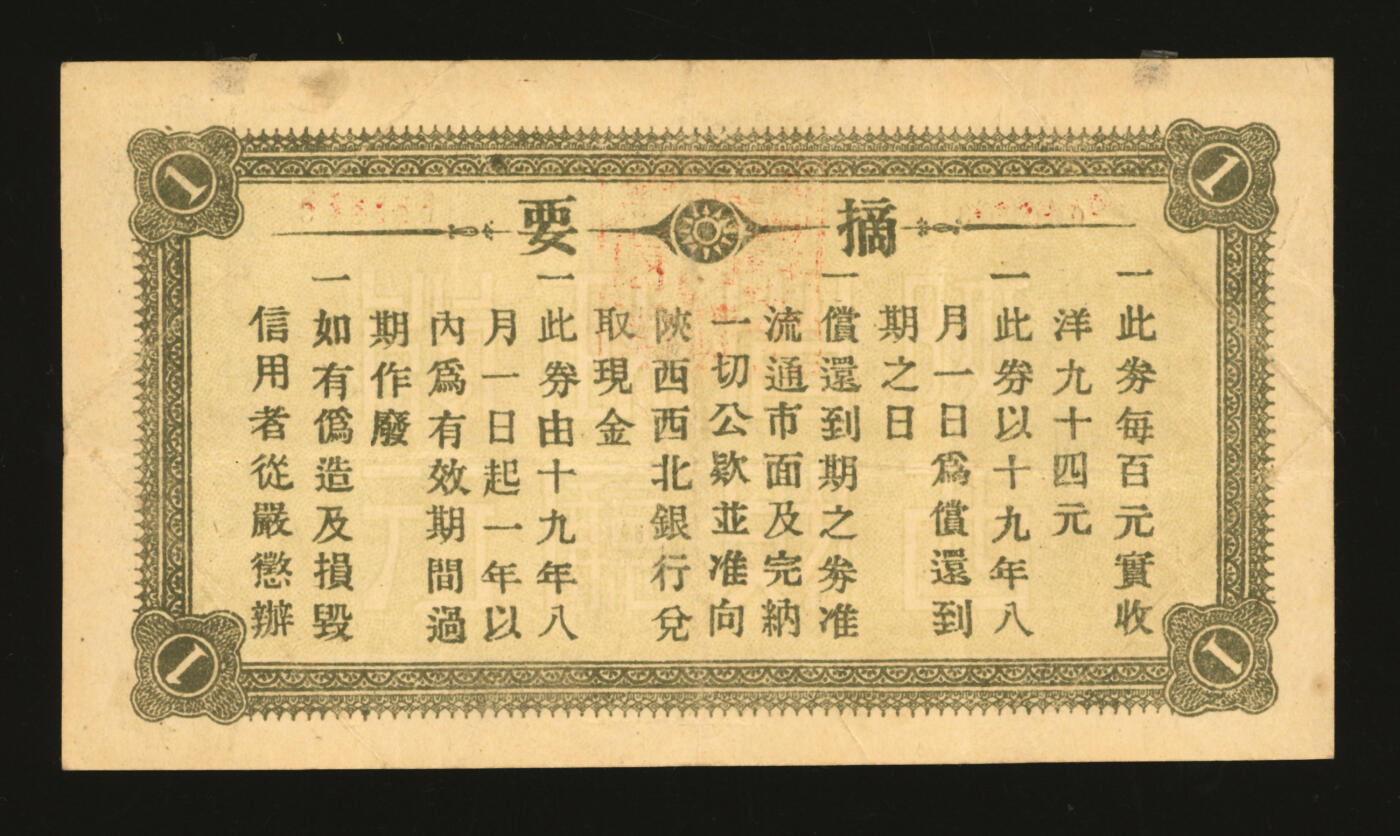 摘要
一此券每百元實收
洋九十四元
一此券以十九年八
月一日爲償還到
期之日
一償還到期之券准
流通市面及完納
一切公欵並准向
陝西西北銀行兌
取現金
一此券由十九年八
月一日起一年以
內爲有效期間過
期作廢
一如有僞造及損毀
信用者從嚴懲辦
1
1
1
1